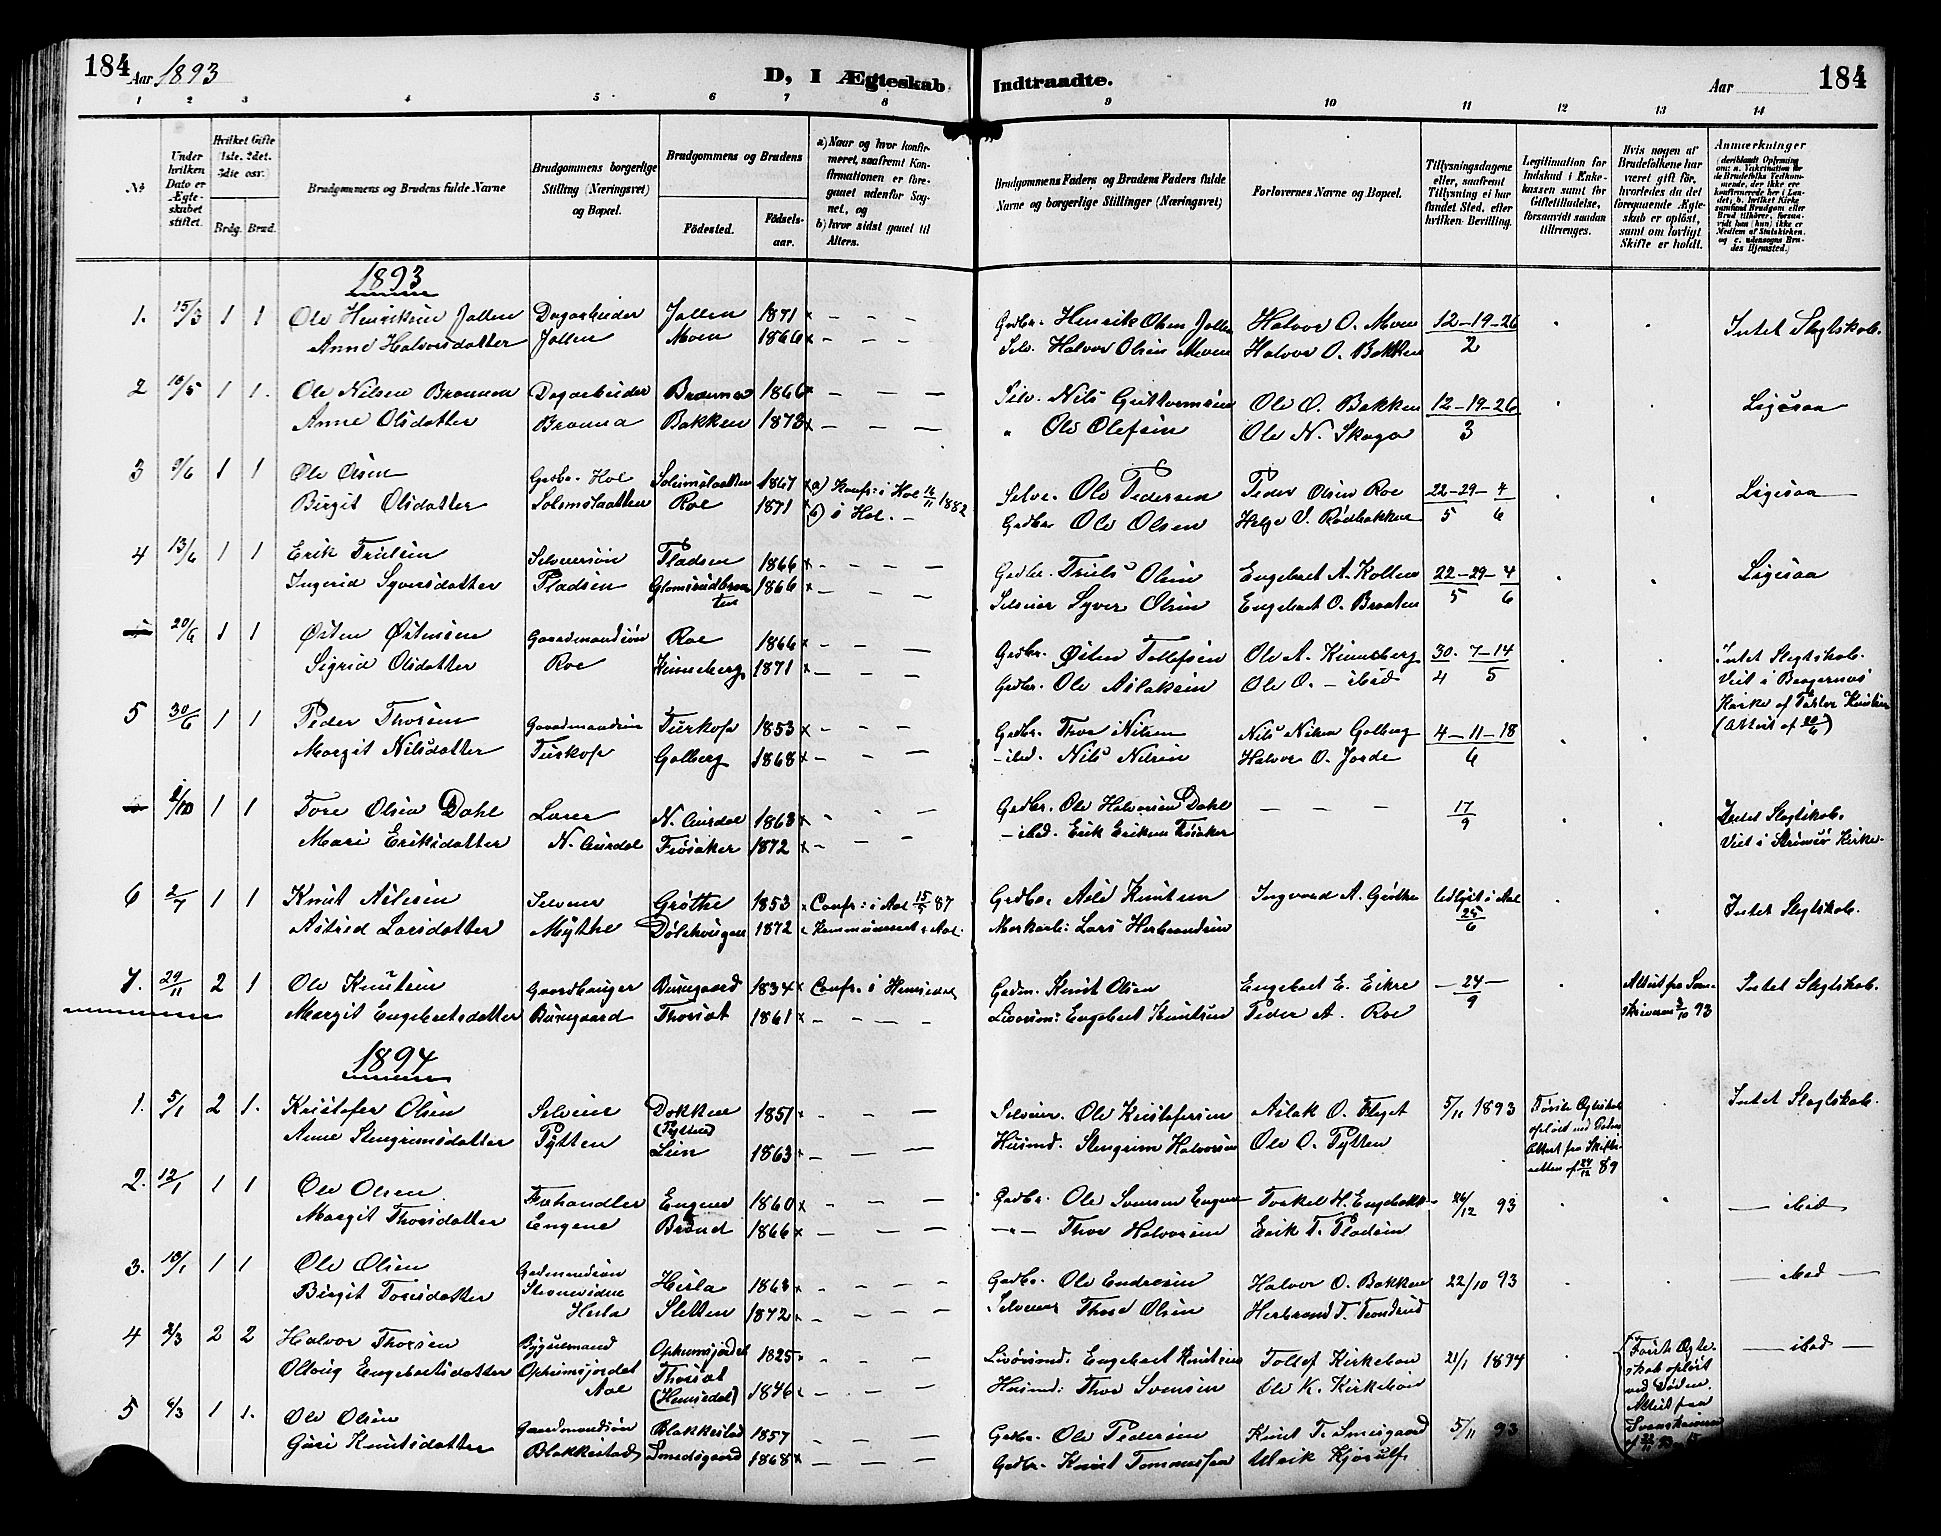 184 Aar 1893 D, I Ægteskab Indtraadte. Aar 184
1 2 3 4 5 6 7 8 9 10 11 12 13 14
No.
Under hvilken Dato er Ægteskabet stiftet.
Hvilket Gifte (1ste, 2det, 3die osv.) Brdg. Brud.
Brudgommens og Brudens fulde Navne
Brudgommens borgerlige Stilling (Næringsvei) og Bopæl.
Brudgommens og Brudens Födested. Födselsaar.
a) Naar og hvor konfirmeret, saafremt Konfirmationen er foregaaet udenfor Sognet, og b) hvor sidst gaaet til Alters.
Brudgommens Faders og Brudens Faders fulde Navne og borgerlige Stillinger (Næringsvei)
Forlovernes Navne og Bopæl.
Tillysningsdagene eller, saafremt Tillysning ei har fundet Sted, efter hvilken Bevilling.
Legitimation for Indskud i Enkekassen samt for Giftetilladelse, forsaavidt saadan tiltrænges.
Hvis nogen af Brudefolkene har været gift för, hvorledes da det foregaaende Ægteskab er oplöst, samt om lovligt Skifte er holdt.
Anmærkninger
1893
1. 15/3 1 1 Ole Henriksen Jallen Dagarbeider Jallen 1871 x — — — Gadbr. Henrik Olsen Jallen Halvor O. Moen 12–19–26 Intet Slegtskab.
Anne Halvorsdatter Jallen Moen 1866 x — — — Selv. Halvor Olsen Moen Halvor O. Bakken 2
2 10/5 1 1. Ole Nilsen Bromma Dagarbeider Bromma 1866 x — — — Selv. Nils Guttormsen Ole O. Bakken 12–19–26 Ligesaa
Anne Olsdatter Bromma Bakken 1873 x — — — " Ole Olefsen Ole N. Skaga 3
3 9/6 1 1 Ole Olsen Gadbr. Hol Solemslaatten 1867 x a) Konfr. i Hol 16/11 1882 Selve. Ole Pedersen Peder Olsen Roe 22–29–4 Ligesaa
Birgit Olsdatter Solemslaatten Roe 1871 x b) i Hol. — Gadbr. Ole Olsen Helge O. Rødbakken 5 6
4 13/6 1 1 Erik Trulsen Selveiersøn Pladsen 1866 x — — — Gadbr. Truls Olsen Engebret A. Kollen 22–29–4 Ligesaa
Ingerid Syversdatter Pladsen Glomsrudbraaten 1866 x — — — Selveier Syver Olsen Engebret O. Braaten 5 6
20/6 1 1 Østen Østensen Gaardmandssøn Roe 1866 x — — — Gadbr. Østen Tollefsen Ole A. Kinneberg 30. 7–14 Intet Slegtskab.
Sigrid Olsdatter Roe Kinneberg 1871 x — — — Gadbr. Ole Aslaksen Ole O. — ibid 4 5 Viet i Bragernes
Kirke af Pastor Knutsen
(Attest af 20/6)
5 30/6 1 1 Peder Thorsen Gaardmandssøn Turkop 1853 x — — — Gadbr. Thor Nilsen Nils Nilsen Golberg 4–11–18
Margit Nilsdatter Turkop Golberg 1868 x — — — — ibid. Nils Nilsen Halvor O. Jorde 6
1/10 1 1 Tore Olsen Dahl Lærer N. Aurdal 1863 x — — — Gadbr. Ole Halvorsen Dahl — — — 17/9 Intet Slegtskab.
Mari Eriksdatter N. Aurdal Frøsaker 1872 x — — — — ibid. Erik Eriksen Frøsaker Viet i Strømsø Kirke.
6 2/7 1 1 Knut Aslesen Selveier Grøthe 1853 x Confr. i Aal 15/5 87 Gadbr. Asle Knutsen Ingvard A. Grøthe ledlyst i Aal Intet Slegtskab.
Astrid Larsdatter Mythe Dølehaugen 1872 x Kommuniceret i Aal. Lars Herbrandsen 25/6
7. 29/11 2 1 Ole Knutsen Gaardbruger Burugaard 1834 x Confr. i Hemsedal Gadm. Knut Olsen Engebret E. Eikre — 24 — Attest fra Sorenskriveren 3/10 93 Intet Slegtskab.
Margit Engebretsdatter Burugaard Thorsat 1861 x — — — Engebret Knutsen Peder A. Roe 9
1894
1. 5/1 2 1. Kristofer Olsen Selveier Dokken (Pytten) 1851 x — — — Selveier. Ole Kristofersen Aslak O. Flget 5/11 1893 Første Egteskab opløst ved Døden Attest fra Skifteretten af 24/12 89 Intet Slegtskab.
Anne Stengrimsdatter Pytten Lien 1863 x — — — Husmd. Stengrim Halvorsen Ole O. Pytten
2. 12/1 1 1 Ole Olsen Fæhandler Engene 1860 x — — — Gadbr. Ole Svensen Engene Torkel H. Engebakk 26/12 93 — ibid
Margit Thorsdatter Engene Brønd 1866 x — — — — " — Thor Halvorsen Erik T. Pladsen
3. 10/1 1 1 Ole Olsen Gadmandssøn Hesla 1863 x — — — Gadbr. Ole Endresen Halvor O. Bakken 22/10 93 — ibid —
Birgit Torisdatter Hesla Sletten 1872 x — — — Selveier Thore Olsen Herbrand T. Trondrud
4 2/3 2 2 Halvor Thorsen Bygselmand Opheimsjordet 1825 x — — — Engebret Knutsen Tollef Kirkebøen 21/1 1894 Først Egteskab opløst ved Døden. Attest fra Sorenskriveren — ibid —
Oltoug Engebretsdatter Opheimsjordet Aal Thorsat (Hemsedal) 1846 x — — — Husmd: Thor Svensen Ole K. Kirkebøen
5 6/3 1 1. Ole Olsen Gaardmandssøn Blakkestad 1857 — — — Gadbr. Ole Pedersen Knut T. Smesgaard 5/11 93
Guri Knutsdatter Blakkestad Smedsgaard 1868 x — — — Gadbr. Knut Tommessen Ulrik Kjørulf